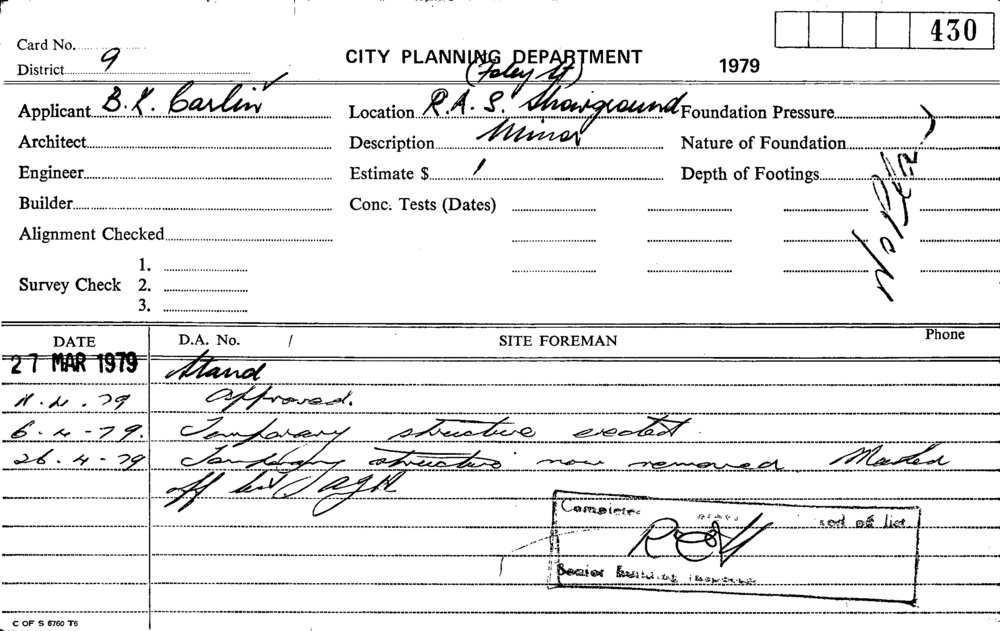 430
Card No.
District 9
CITY PLANNING DEPARTMENT
1979
(Foley St)
Applicant B. K. Carlin
Location R.A.S. Showground
Foundation Pressure
Architect
Description Minor
Nature of Foundation
Engineer
Estimate $ /
Depth of Footings
No Plan
Builder
Conc. Tests (Dates)
Alignment Checked
Survey Check
1.
2.
3.
DATE
D.A. No. /
SITE FOREMAN
Phone
27 MAR 1979 Stand
11.4.79 Approved.
6-4-79. Temporary structure erected.
26-4-79 Temporary structure now removed. Marked
off list
Completed
off list
Senior Building Inspector
C OF S 6760 T6